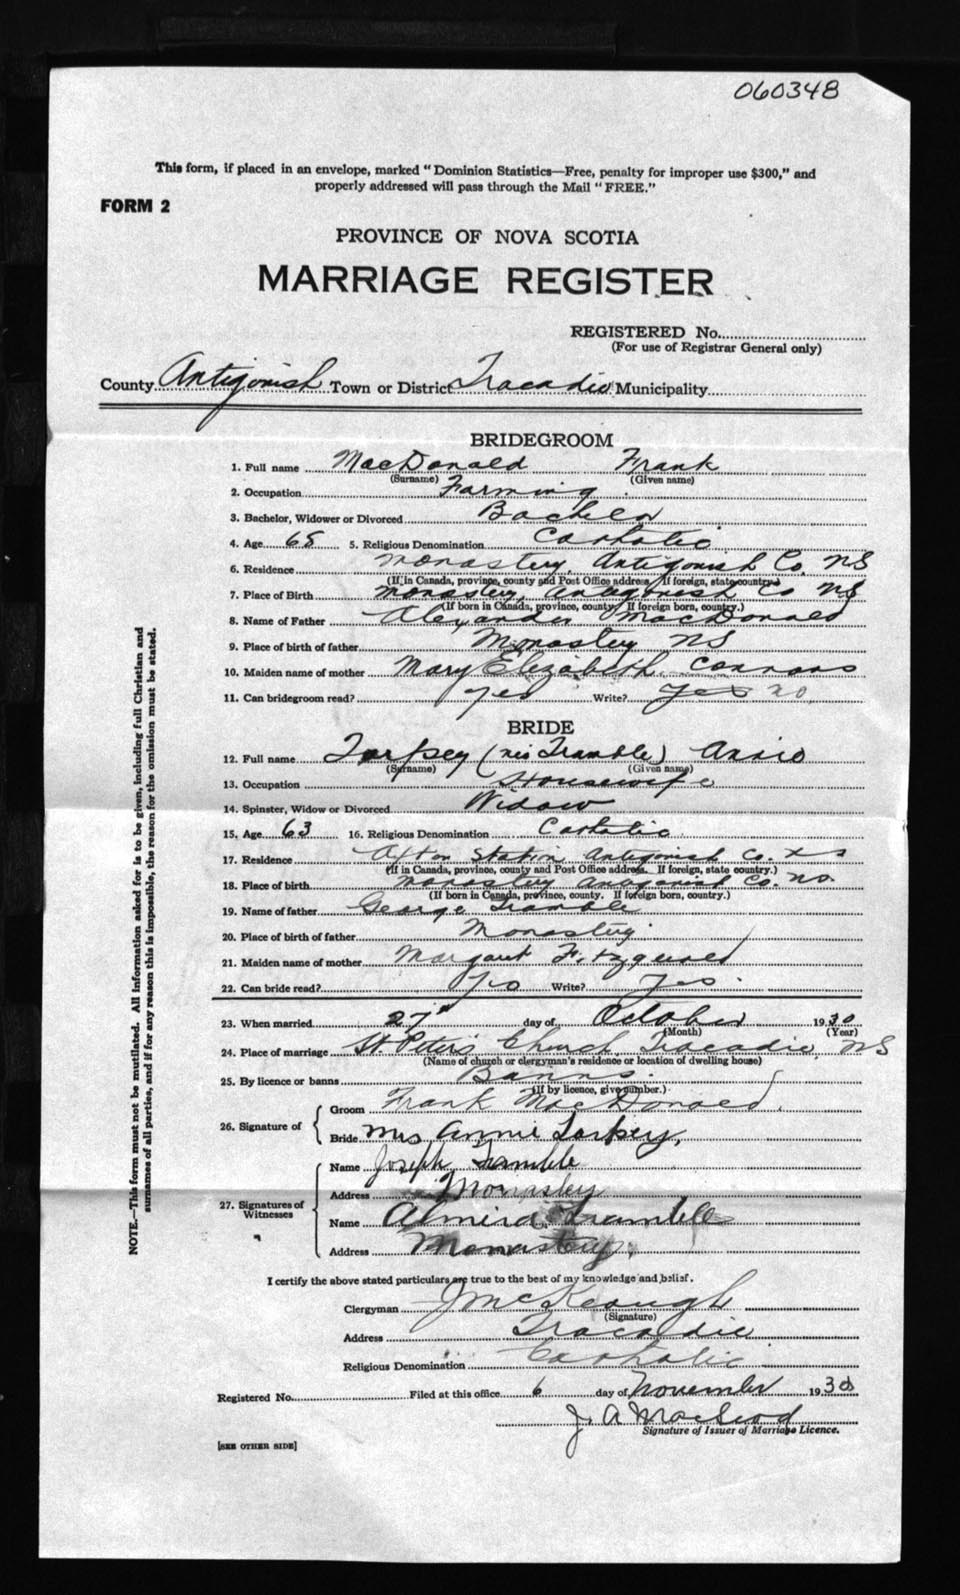 060348
This form, if placed in an envelope, marked "Dominion Statistics—Free, penalty for improper use $300," and
properly addressed will pass through the Mail "FREE."
FORM 2
PROVINCE OF NOVA SCOTIA
MARRIAGE REGISTER
REGISTERED No.
(For use of Registrar General only)
County Antigonish Town or District Tracadie Municipality
BRIDEGROOM
1. Full name MacDonald Frank
(Surname) (Given name)
2. Occupation Farming
3. Bachelor, Widower or Divorced Bachelor
4. Age 5. Religious Denomination Catholic
6. Residence Monastery, Antigonish Co, NS
(If in Canada, province, county and Post Office address. If foreign, state country)
7. Place of Birth Monastery, Antigonish Co NS
(If born in Canada, province, county. If foreign born, country.)
8. Name of Father Alexander MacDonald
9. Place of birth of father Monastery NS
10. Maiden name of mother Mary Elizabeth Connors
11. Can bridegroom read? yes Write? yes no
BRIDE
12. Full name Torpey (née Tramble) Annie
(Surname) (Given name)
13. Occupation Housewife
14. Spinster, Widow or Divorced Widow
15. Age 63 16. Religious Denomination Catholic
17. Residence Afton Station Antigonish Co. NS
(If in Canada, province, county and Post Office address. If foreign, state country.)
18. Place of birth Monastery Antigonish Co. NS.
(If born in Canada, province, county. If foreign born, country.)
19. Name of father George Tramble
20. Place of birth of father Monastery
21. Maiden name of mother Margaret Fitzgerald
22. Can bride read? Yes Write? Yes
23. When married 27th day of October 1930
(Month) (Year)
24. Place of marriage St. Peter's Church, Tracadie, NS
(Name of church or clergyman's residence or location of dwelling house)
25. By licence or banns Banns.
(If by licence, give number.)
26. Signature of
Groom Frank MacDonald.
Bride Mrs Annie Torpey,
27. Signatures of Witnesses
Name Joseph Tramble
Address Monastery
Name Almira Tramble
Address Monastery,
I certify the above stated particulars are true to the best of my knowledge and belief.
Clergyman J McKeough
(Signature)
Address Tracadie
Religious Denomination Catholic
Registered No. Filed at this office 6 day of November 1930
J. A MacLeod
Signature of Issuer of Marriage Licence.
[SEE OTHER SIDE]
NOTE.—This form must not be mutilated. All information asked for is to be given, including full Christian and
surnames of all parties, and if for any reason this is impossible, the reason for the omission must be stated.